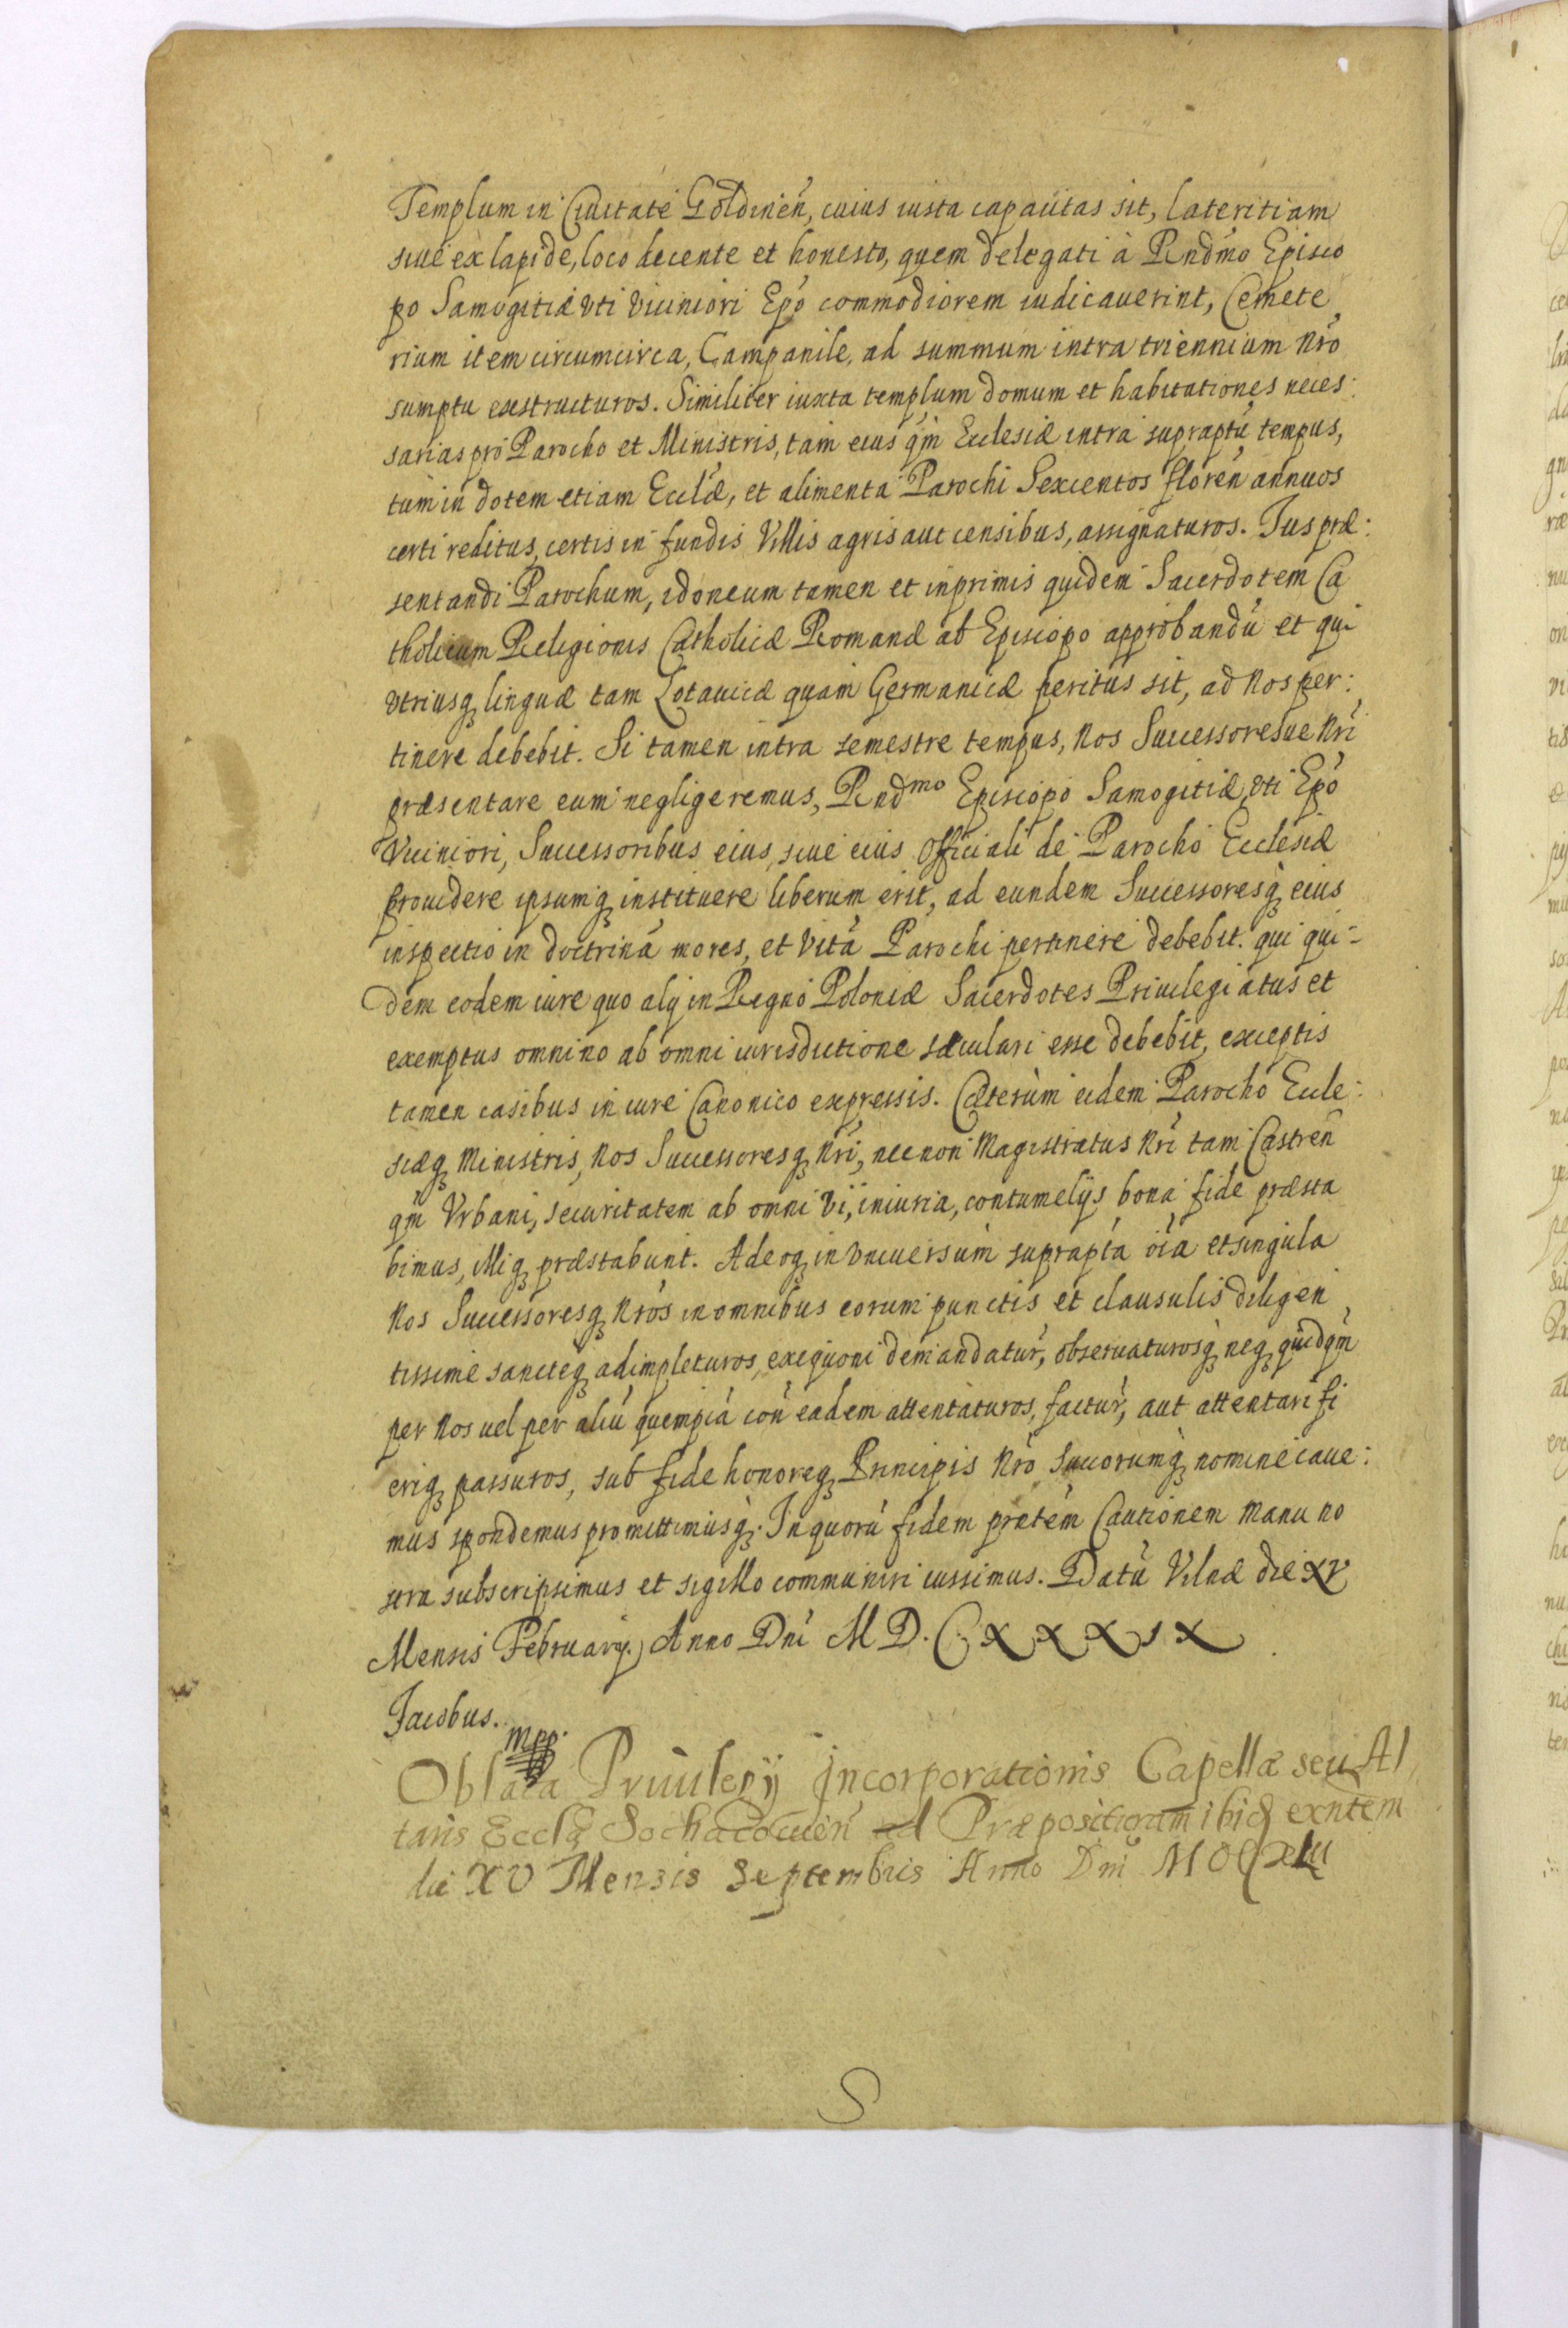 Templum in Ciuitate Goldinen̄, cuius iusta capacitas sit, lateritiam
siue ex lapide, loco decente et honesto, quem delegati à Rndmo Episco
po Samogitiæ vti viciniori Epo commodiorem iudicauerint, Cemete
rium item circumcirca, Campanile, ad summum intra triennium Nro
sumptu exstructuros. Similiter iuxta templum domum et habitationes neces:
sarias pro Parocho et Ministris, tam eius qm Ecclesiæ intra supraptu tempus,
tum in dotem etiam Ecclæ, et alimenta Parochi Sexcentos floren annuos
certi reditus, certis in fundis Villis agris aut censibus, assignaturos. Jus præ:
sentandi Parochum, idoneum tamen et inprimis quidem Sacerdotem Ca
tholicum Religionis Catholicæ Romanæ ab Episcopo approbandu et qui
vtriusq linguæ tam Lotauicæ quam Germanicæ peritus sit, ad Nos per:
tinere debebit. Si tamen intra semestre tempus, Nos Successoresue Nri
præsentare eum negligeremus, Rndmo Episcopo Samogitiæ vti Epo
Viciniori, Successoribus eius, siue eius Officiali de Parocho Ecclesiæ
prouidere ipsumq instituere liberum erit, ad eundem Successoresq eius
inspectio in doctrina mores, et vita Parochi pertinere debebit. qui qui-
dem eodem iure quo alij in Regno Poloniæ Sacerdotes Priuilegiatus et
exemptus omnino ab omni iurisdictione sæculari esse debebit, exceptis
tamen casibus in iure Canonico expressis. Cæterùm eidem Parocho Eccle:
siæq Ministris, Nos Successoresq Nri, necnon Magistratus Nri tam Castren
qm Vrbani, securitatem ab omni vi, iniuria, contumelijs bona fide præsta
bimus, illiq præstabunt. Adeoq in vniuersum suprapta oia et singula
Nos Successoresq Nros in omnibus eorum punctis et clausulis diligen
tissime sancteq adimpleturos, exequoni demandatur, obseruaturosq neq quidqm
per Nos uel per aliu quempia con eadem attentaturos, factur, aut attentari fi
eriq passuros, sub fide honoreq Principis Nro Succorumq nomine caue:
mus spondemus promittimusq. In quoru fidem pntem Cautionem manu no
stra subscripsimus et sigillo communiri iussimus. Datu Vilnæ die XV
Mensis Februarij. Anno Dni M D. C. X X X I X
Jacobus.
mpp.
Oblata Priuilegij Incorporationis Capellæ seu Al
taris Eccle Sochacouien ad Præposituram ibid exntem
die XV Mensis Septembris Anno Dni
S